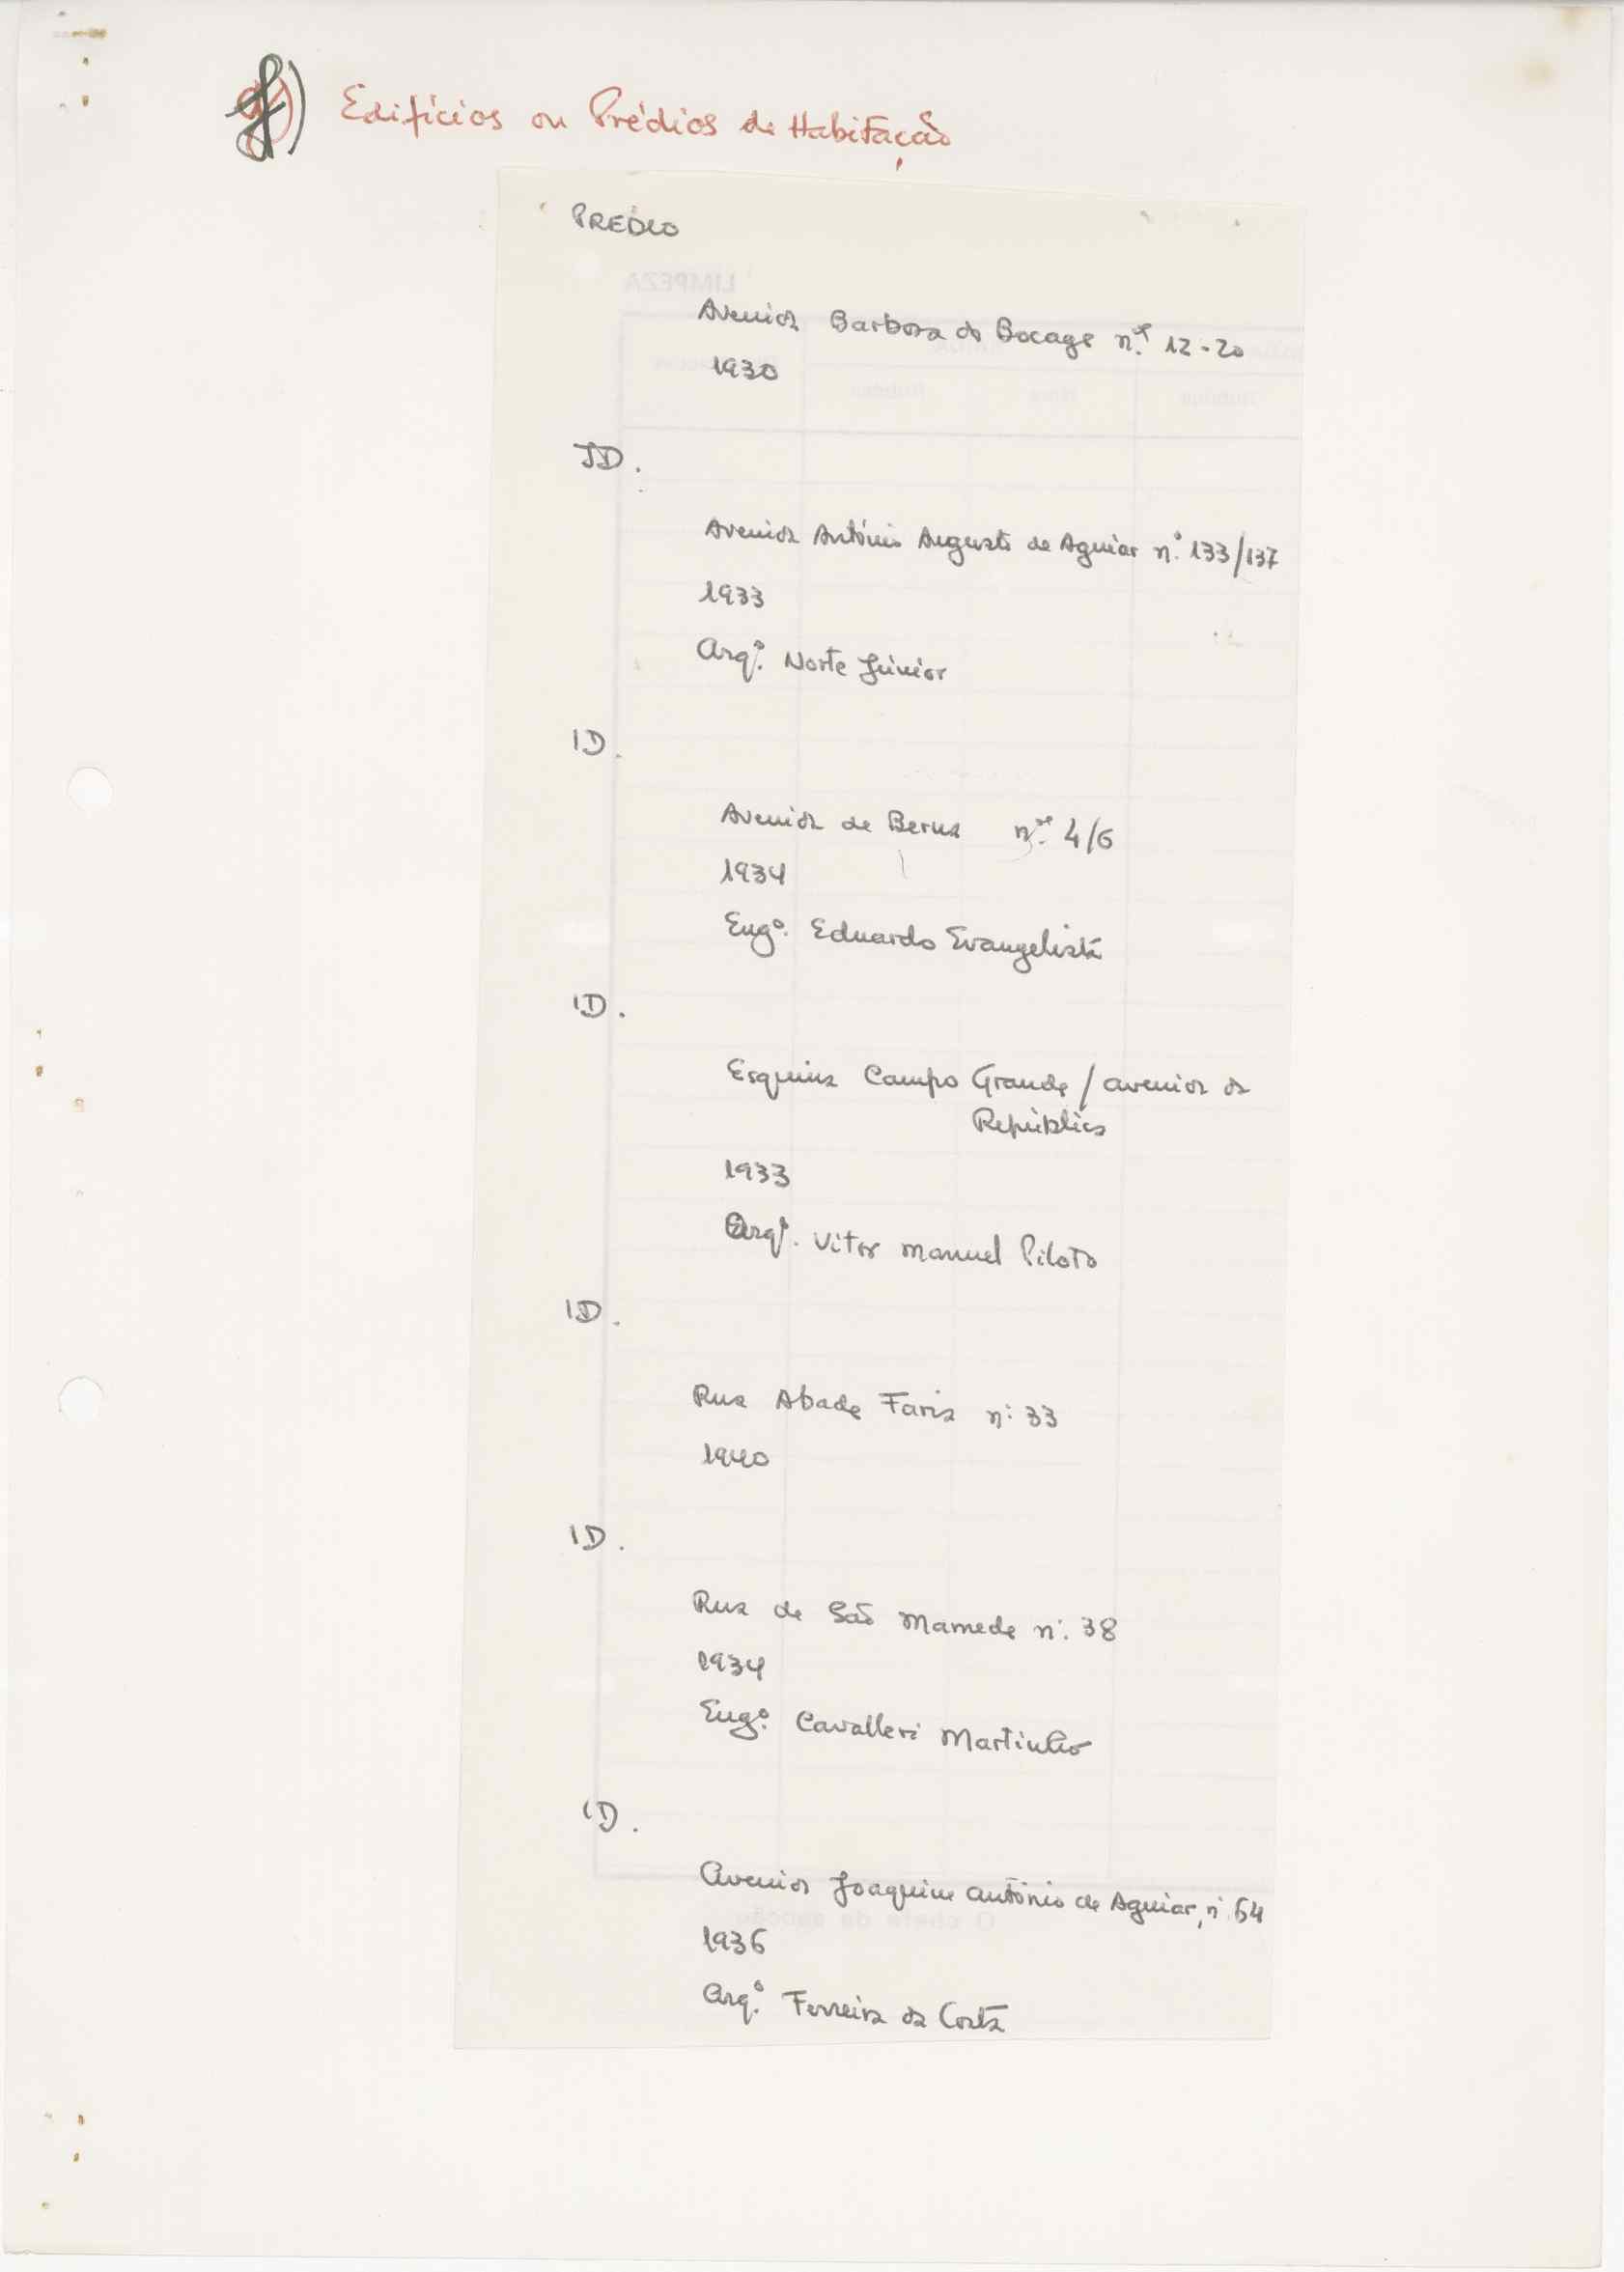 f) Edifícios ou Prédios de Habitação
PRÉDIO
LIMPEZA
Avenida Barbosa do Bocage n.os 12-20
1930
ID.
Avenida António Augusto de Aguiar n.º 133/137
1933
Arqº. Norte Júnior
ID.
Avenida de Berna nos. 4/6
1934
Engº. Eduardo Evangelista
ID.
Esquina Campo Grande / avenida da
República
1933
Arqº. Vitor Manuel Piloto
ID.
Rua Abade Faria nº 33
1940
ID.
Rua de São Mamede nº. 38
1934
Engº. Cavalleri Martinho
ID.
Avenida Joaquim António de Aguiar, nº 64
O chefe da secção
1936
Arqº. Ferreira da Costa